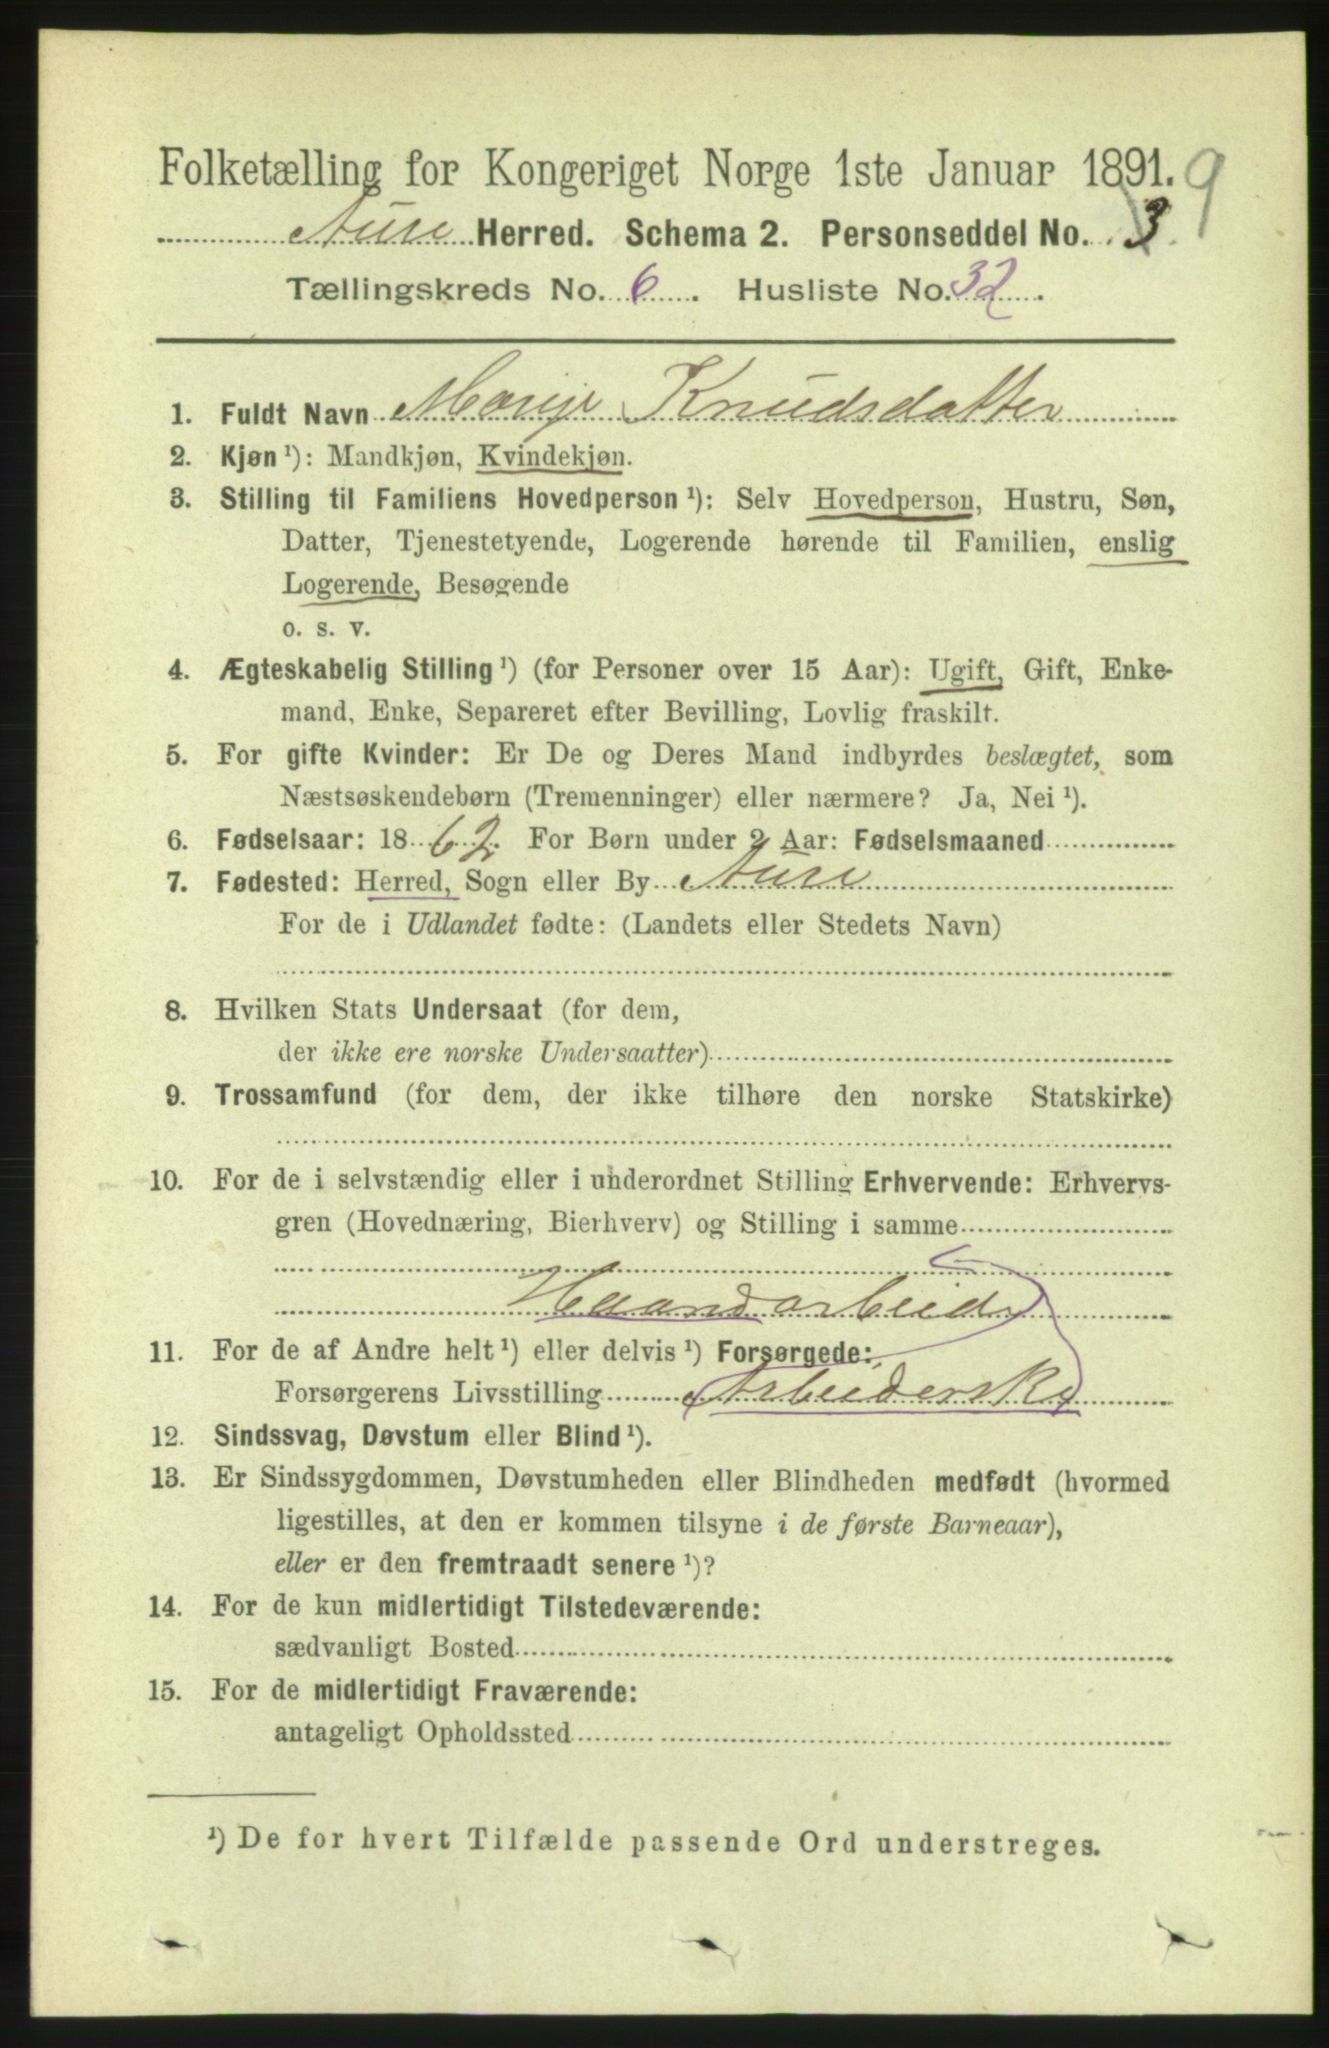 Folketælling for Kongeriget Norge 1ste Januar 1891. 9
Aure Herred. Schema 2. Personseddel No. 3
Tællingskreds No. 6. Husliste No. 32.
1. Fuldt Navn Knudsdatter
2. Kjøn ¹): Mandkjøn, Kvindekjøn.
3. Stilling til Familiens Hovedperson ¹): Selv Hovedperson, Hustru, Søn,
Datter, Tjenestetyende, Logerende hørende til Familien, enslig
Logerende, Besøgende
o. s. v.
4. Ægteskabelig Stilling ¹) (for Personer over 15 Aar): Ugift, Gift, Enke-
mand, Enke, Separeret efter Bevilling, Lovlig fraskilt.
5. For gifte Kvinder: Er De og Deres Mand indbyrdes beslægtet, som
Næstsøskendebørn (Tremenninger) eller nærmere? Ja, Nei ¹).
6. Fødselsaar: 1862. For Børn under 2 Aar: Fødselsmaaned
7. Fødested: Herred, Sogn eller By Aure
For de i Udlandet fødte: (Landets eller Stedets Navn)
8. Hvilken Stats Undersaat (for dem,
der ikke ere norske Undersaatter)
9. Trossamfund (for dem, der ikke tilhøre den norske Statskirke)
10. For de i selvstændig eller i underordnet Stilling Erhvervende: Erhvervs-
gren (Hovednæring, Bierhverv) og Stilling i samme
Haandarbeide
11. For de af Andre helt ¹) eller delvis ¹) Forsørgede:
Forsørgerens Livsstilling Arbeiderske
12. Sindssvag, Døvstum eller Blind ¹).
13. Er Sindssygdommen, Døvstumheden eller Blindheden medfødt (hvormed
ligestilles, at den er kommen tilsyne i de første Barneaar),
eller er den fremtraadt senere ¹)?
14. For de kun midlertidigt Tilstedeværende:
sædvanligt Bosted
15. For de midlertidigt Fraværende:
antageligt Opholdssted
¹) De for hvert Tilfælde passende Ord understreges.